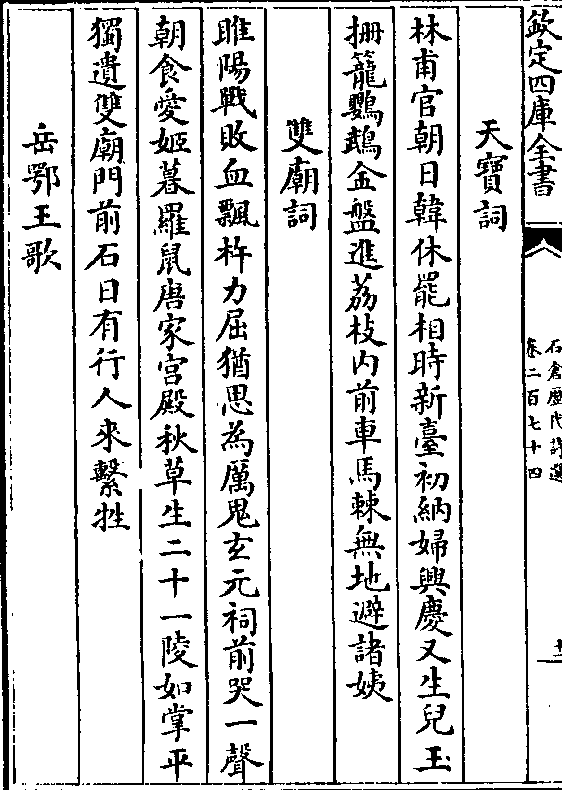 欽定四庫全書
石倉歷代詩選
卷二百七十四
天寶詞
林甫官朝日韓休罷相時新臺初納婦興慶又生兒玉
柵籠鸚鵡金盤進荔枝内前車馬棘無地避諸姨
雙廟詞
睢陽戰敗血飄杵力屈猶思為厲鬼玄元祠前哭一聲
朝食愛姬暮羅鼠唐家宮殿秋草生二十一陵如掌平
獨遺雙廟門前石日有行人來繫牲
岳鄂王歌